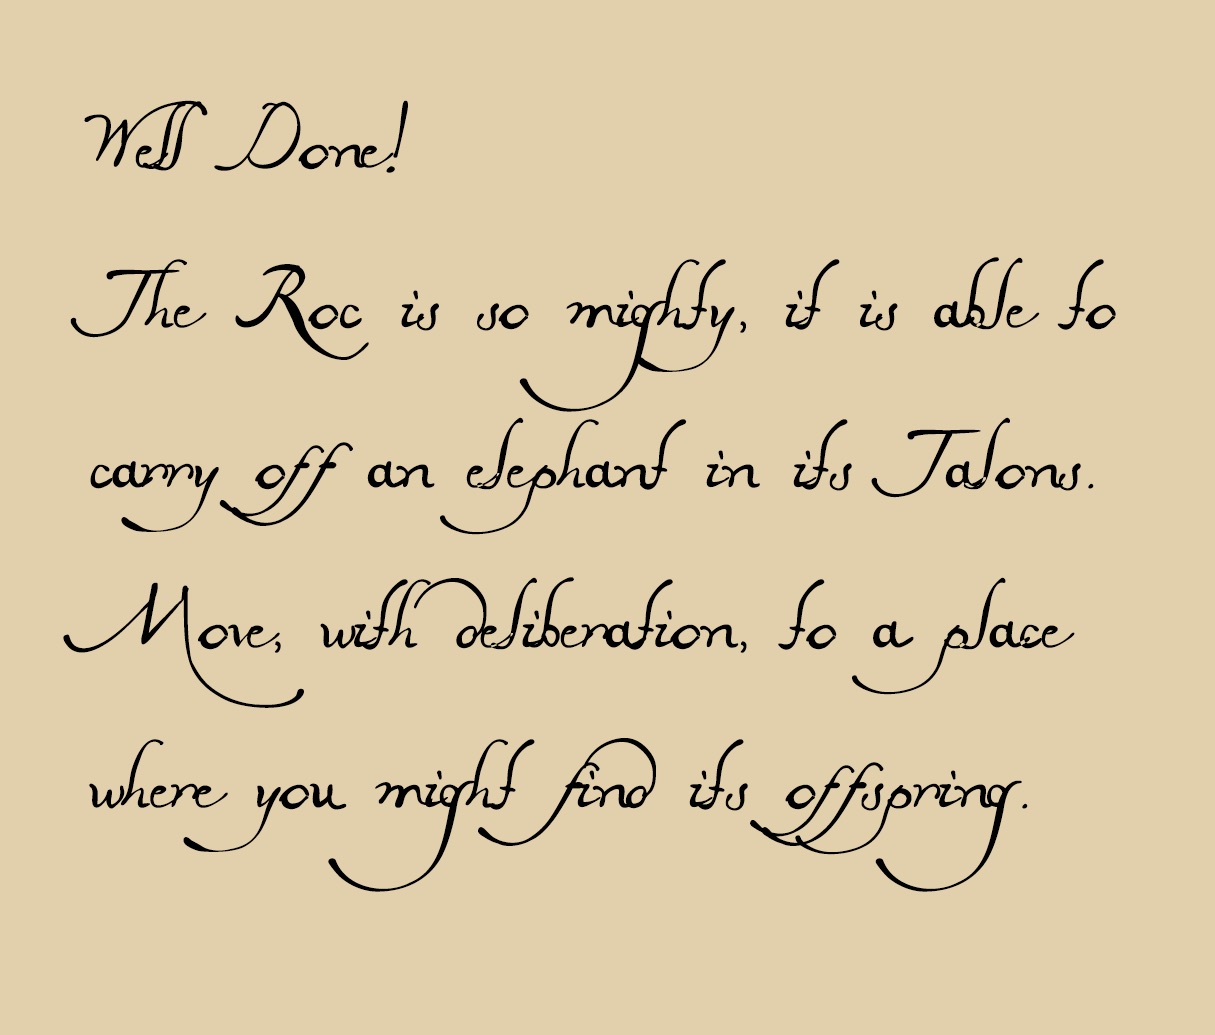 Well Done!
The Roc is so mighty, it is able to
carry off an elephant in its Talons.
Move, with deliberation, to a place
where you might find its offspring.